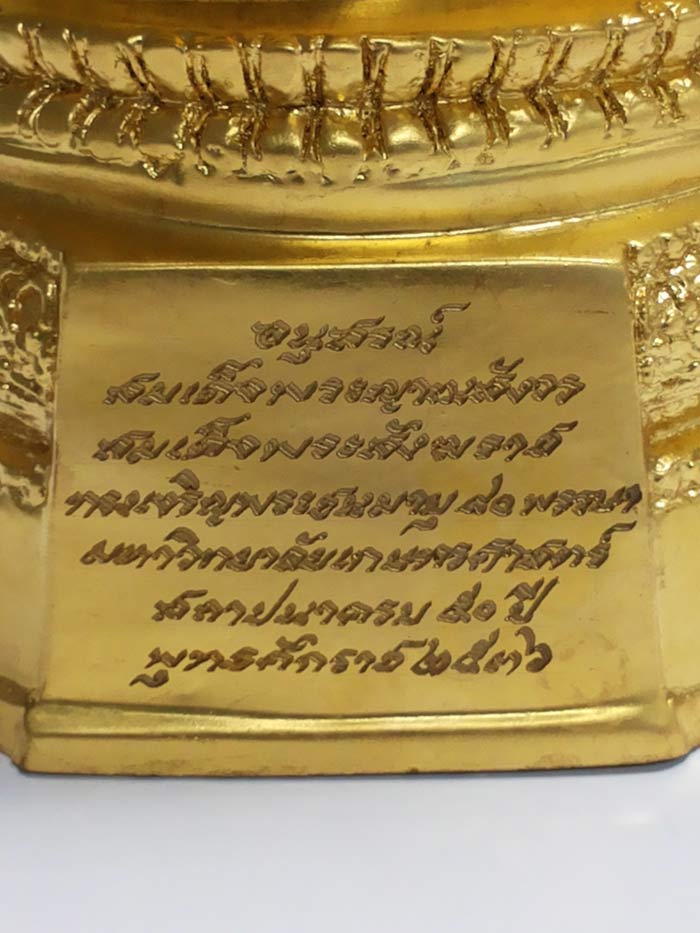 อนุสรณ์
สมเด็จพระญาณสังวร
สมเด็จพระสังฆราช
ทรงเจริญพระชนมายุ ๘๐ พรรษา
มหาวิทยาลัยเกษตรศาสตร์
สถาปนาครบ ๕๐ ปี
พุทธศักราช ๒๕๓๖